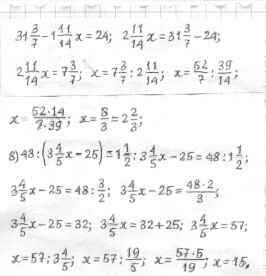 31 3/7 - 1 11/14 x = 24; 2 11/14 x = 31 3/7 - 24;
2 11/14 x = 7 3/7; x = 7 3/7 : 2 11/14; x = 52/7 : 39/14;
x = 52·14/7·39; x = 8/3 = 2 2/3;
в) 48 : (3 4/5 x - 25) = 1 1/2; 3 4/5 x - 25 = 48 : 1 1/2;
3 4/5 x - 25 = 48 : 3/2; 3 4/5 x - 25 = 48·2/3;
3 4/5 x - 25 = 32; 3 4/5 x = 32 + 25; 3 4/5 x = 57;
x = 57 : 3 4/5; x = 57 : 19/5; x = 57·5/19; x = 15.